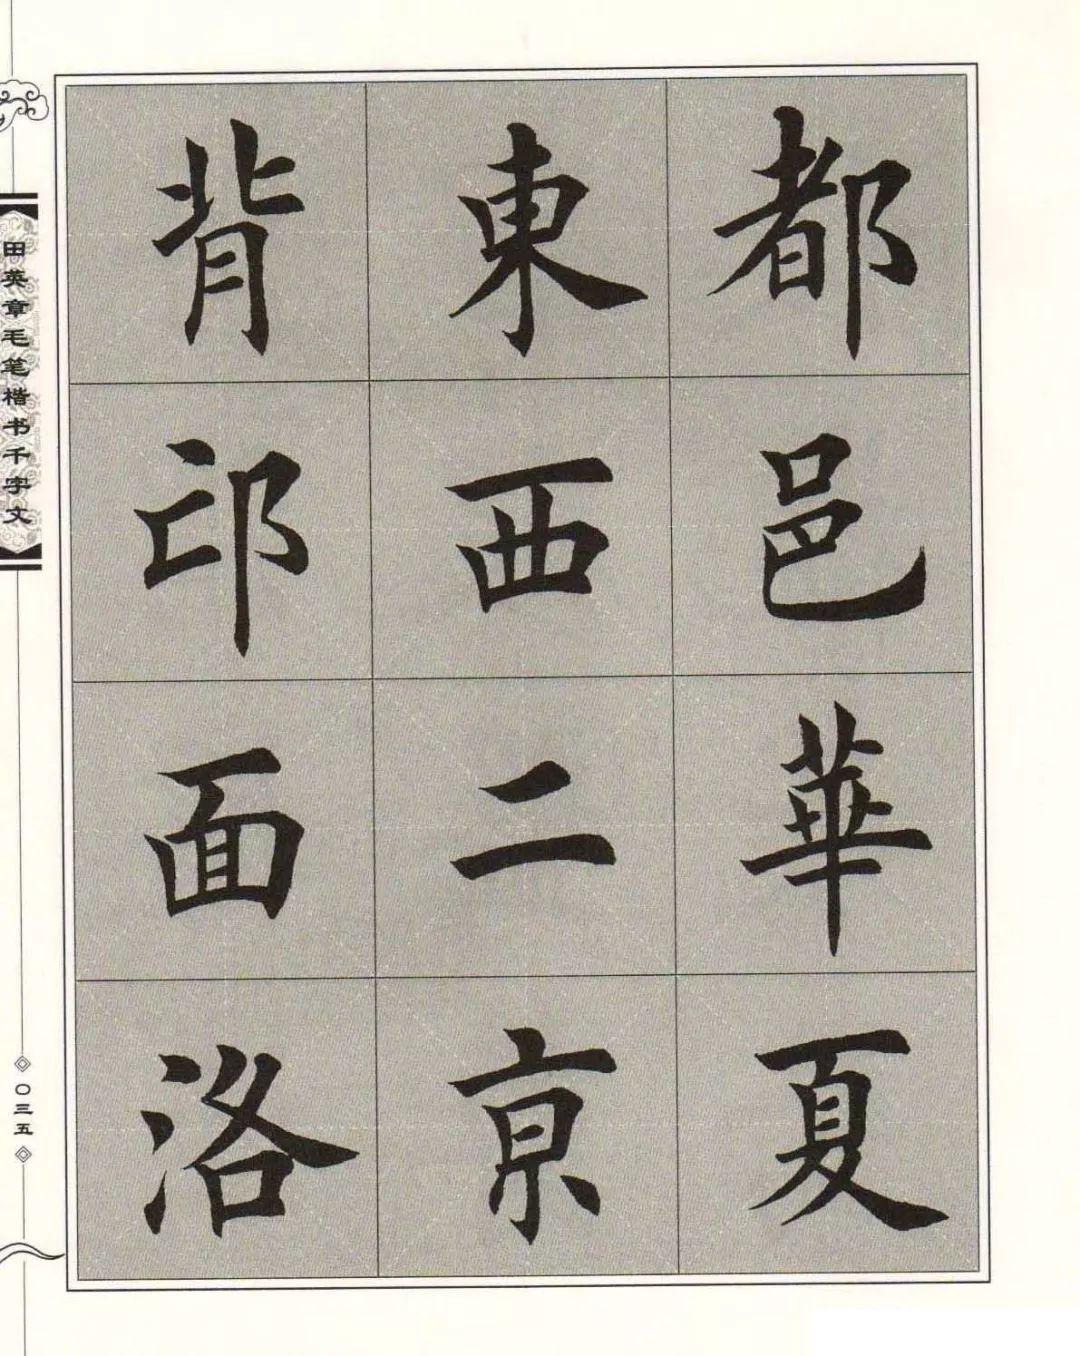 都邑華夏
東西二京
背邙面洛
田英章毛笔楷书千字文
〇三五